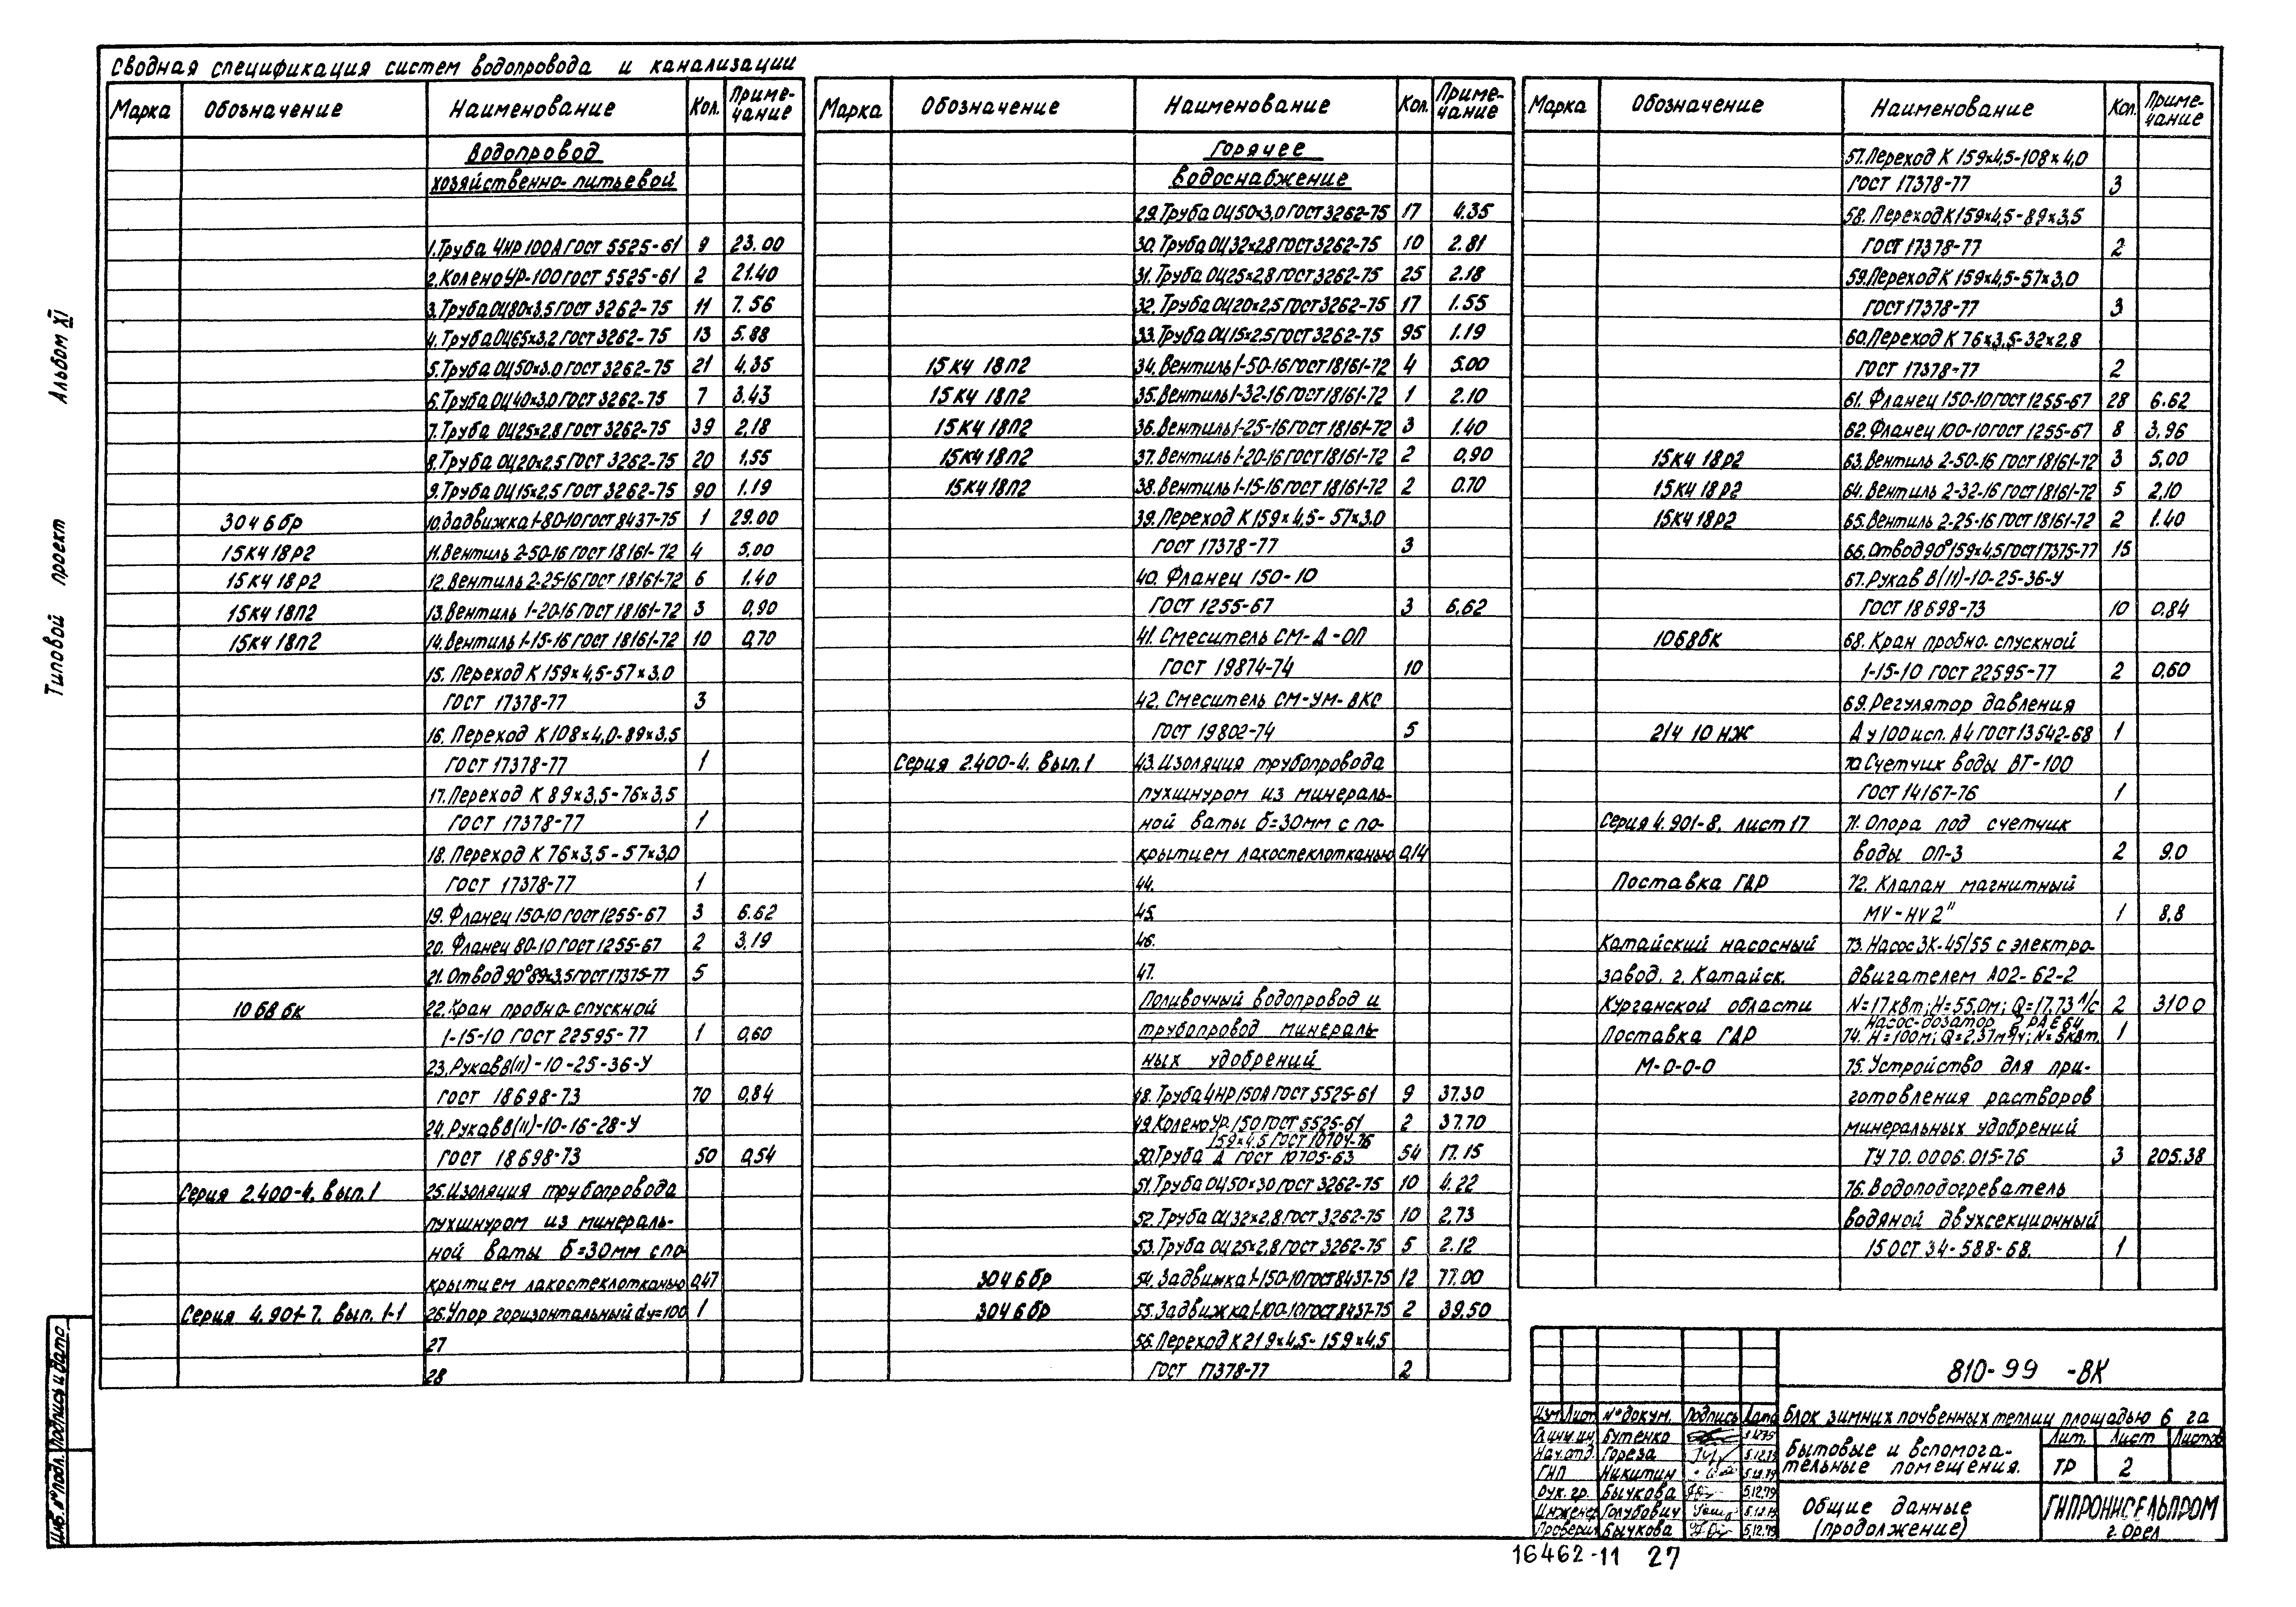 Сводная спецификация систем водопровода и канализации
Марка Обозначение Наименование Кол. Приме-
чание
Водопровод
хозяйственно-питьевой
1.Труба ЧНР 100А ГОСТ 5525-61 9 23.00
2.Колено УР-100 ГОСТ 5525-61 2 21.40
3.Труба ОЦ80×3,5 ГОСТ 3262-75 11 7.56
4.Труба ОЦ65×3,2 ГОСТ 3262-75 13 5.88
5.Труба ОЦ50×3.0 ГОСТ 3262-75 21 4.35
6.Труба ОЦ40×3,0 ГОСТ 3262-75 7 3.43
7.Труба ОЦ25×2,8 ГОСТ 3262-75 39 2,18
8.Труба ОЦ20×2,5 ГОСТ 3262-75 20 1,55
9.Труба ОЦ15×2,5 ГОСТ 3262-75 90 1.19
30ч6бр 10.Задвижка 1-80-10 ГОСТ 8437-75 1 29.00
15КЧ18Р2 11.Вентиль 2-50-16 ГОСТ 18161-72 4 5,00
15КЧ18Р2 12.Вентиль 2-25-16 ГОСТ 18161-72 6 1.40
15КЧ18П2 13.Вентиль 1-20-16 ГОСТ 18161-72 3 0,90
15КЧ18П2 14.Вентиль 1-15-16 ГОСТ 18161-72 10 0,70
15. Переход К 159×4,5-57×3,0
ГОСТ 17378-77 3
16. Переход К108×4,0-89×3,5
ГОСТ 17378-77 1
17.Переход К 89×3,5-76×3,5
ГОСТ 17378-77 1
18. Переход К 76×3,5-57×3,0
ГОСТ 17378-77 1
19. Фланец 150-10 ГОСТ 1255-67 3 6.62
20. Фланец 80-10 ГОСТ 1255-67 2 3,19
21. Отвод 90° 89×3,5 ГОСТ 17375-77 5
10б8бк 22.Кран пробно-спускной
1-15-10 ГОСТ 22595-77 1 0,60
23.Рукав В(II)-10-25-36-У
ГОСТ 18698-73 70 0,84
24.Рукав В(II)-10-16-28-У
ГОСТ 18698-73 50 0,54
Серия 2.400-4. вып.1 25.Изоляция трубопровода
пухшнуром из минераль-
ной ваты δ=30мм с по-
крытием лакостеклотканью 0,47
Серия 4.901-7. вып. 1-1 26.Упор горизонтальный dy=100 1
27
28
Марка Обозначение Наименование Кол. Приме-
чание
Горячее
водоснабжение
29.Труба ОЦ50×3,0 ГОСТ 3262-75 17 4.35
30.Труба ОЦ32×2,8 ГОСТ 3262-75 10 2.81
31.Труба ОЦ25×2,8 ГОСТ 3262-75 25 2.18
32.Труба ОЦ20×2,5 ГОСТ 3262-75 17 1.55
33.Труба ОЦ15×2,5 ГОСТ 3262-75 95 1.19
15КЧ 18П2 34.Вентиль 1-50-16 ГОСТ 18161-72 4 5.00
15КЧ 18П2 35.Вентиль 1-32-16 ГОСТ 18161-72 1 2.10
15КЧ 18П2 36.Вентиль 1-25-16 ГОСТ 18161-72 3 1.40
15КЧ 18П2 37.Вентиль 1-20-16 ГОСТ 18161-72 2 0,90
15КЧ 18П2 38.Вентиль 1-15-16 ГОСТ 18161-72 2 0.70
39.Переход К159×4,5-57×3.0
ГОСТ 17378-77 3
40. Фланец 150-10
ГОСТ 1255-67 3 6,62
41. Смеситель СМ-Д-ОП
ГОСТ 19874-74 10
42. Смеситель СМ-УМ-ВКС
ГОСТ 19802-74 5
Серия 2.400-4. вып.1 43.Изоляция трубопровода
пухшнуром из минераль-
ной ваты δ=30мм с по-
крытием лакостеклотканью 0,14
44.
45.
46.
47.
Поливочный водопровод и
трубопровод минераль-
ных удобрений
48.Труба ЧНР 150А ГОСТ 5525-61 9 37.30
49.Колено УР-150 ГОСТ 5525-61 2 37.70
50.Труба 159×4,5 ГОСТ 10704-76
Д ГОСТ 10705-63 54 17.15
51.Труба ОЦ50×30 ГОСТ 3262-75 10 4.22
52.Труба ОЦ32×2,8 ГОСТ 3262-75 10 2,73
53.Труба ОЦ25×2,8 ГОСТ 3262-75 5 2.12
30ч6бр 54. Задвижка 1-150-10 ГОСТ 8437-75 12 77.00
30ч6бр 55.Задвижка 1-100-10 ГОСТ 8437-75 2 39.50
56.Переход К219×4,5-159×4,5
ГОСТ 17378-77 2
Марка Обозначение Наименование Кол. Приме-
чание
57.Переход К 159×4,5-108×4,0
ГОСТ 17378-77 3
58. Переход К159×4,5-89×3,5
ГОСТ 17378-77 2
59.Переход К 159×4,5-57×3,0
ГОСТ 17378-77 3
60.Переход К 76×3,5-32×2,8
ГОСТ 17378-77 2
61. Фланец 150-10 ГОСТ 1255-67 28 6.62
62.Фланец 100-10 ГОСТ 1255-67 8 3,96
15КЧ 18Р2 63.Вентиль 2-50-16 ГОСТ 18161-72 3 5,00
15КЧ 18Р2 64.Вентиль 2-32-16 ГОСТ 18161-72 5 2,10
15КЧ 18Р2 65.Вентиль 2-25-16 ГОСТ 18161-72 2 1.40
66.Отвод 90° 159×4,5 ГОСТ 17375-77 15
67.Рукав В(II)-10-25-36-У
ГОСТ 18698-73 10 0,84
10б8бк 68. Кран пробно-спускной
1-15-10 ГОСТ 22595-77 2 0,60
69.Регулятор давления
21ч 10 нж Ду100 исп. А4 ГОСТ 13542-68 1
70.Счетчик воды ВТ-100
ГОСТ 14167-76 1
Серия 4.901-8. лист 17 71. Опора под счетчик
воды ОП-3 2 9.0
Поставка ГДР 72. Клапан магнитный
МV-НV 2" 1 8,8
Катайский насосный 73.Насос 3К-45/55 с электро-
завод. г. Катайск. двигателем АО2-62-2
Курганской области N=17квт; Н=55,0м; Q=17,73 л/с 2 310 0
Поставка ГДР 74. Насос-дозатор
Н=100м; Q=2,37м³/ч; N=5квт. 1
М-0-0-0 75.Устройство для при-
готовления растворов
минеральных удобрений
ТУ 70.0006.015-76 3 205.38
76.Водоподогреватель
водяной двухсекционный
15 ОСТ 34-588-68. 1
Альбом XI
Типовой проект
Инв.№подл. Подпись и дата
810-99 -ВК
Изм Лист №докум. Подпись Дата
Блок зимних почвенных теплиц площадью 6 га
Гл.инж.ин. Бутенко
Нач.отд. Гореза
ГИП Никитин
Рук. гр. Бычкова 5.12.79
Инженер Голубович
Проверил Бычкова 5.12.79
Бытовые и вспомога-
тельные помещения.
Лит. Лист Листов
ТР 2
Общие данные
(продолжение)
ГИПРОНИСЕЛЬПРОМ
г. Орел
16462-11 27